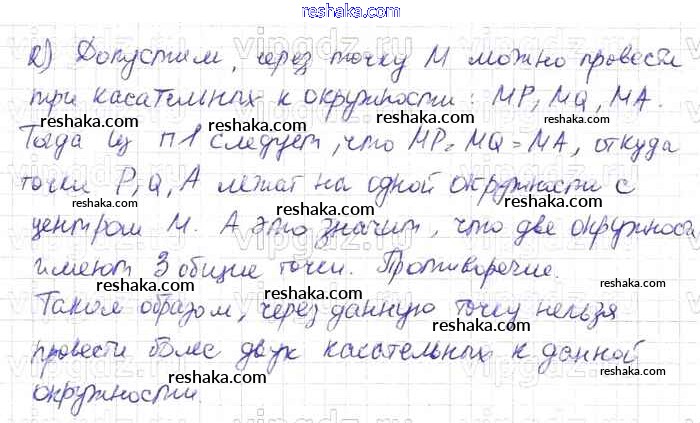 reshaka.com
2) Допустим, через точку М можно провести
три касательных к окружности: MP, MQ, MA.
reshaka.com reshaka.com reshaka.com
Тогда из п1 следует, что MP = MQ = MA, откуда
reshaka.com
точки P, Q, A лежат на одной окружности с
reshaka.com reshaka.com
центром М. А это значит, что две окружност
reshaka.com
имеют 3 общие точки. Противоречие.
reshaka.com
Таким образом, через данную точку нельзя
reshaka.com reshaka.com
провести более двух касательных к данной
reshaka.com reshaka.com
окружности.